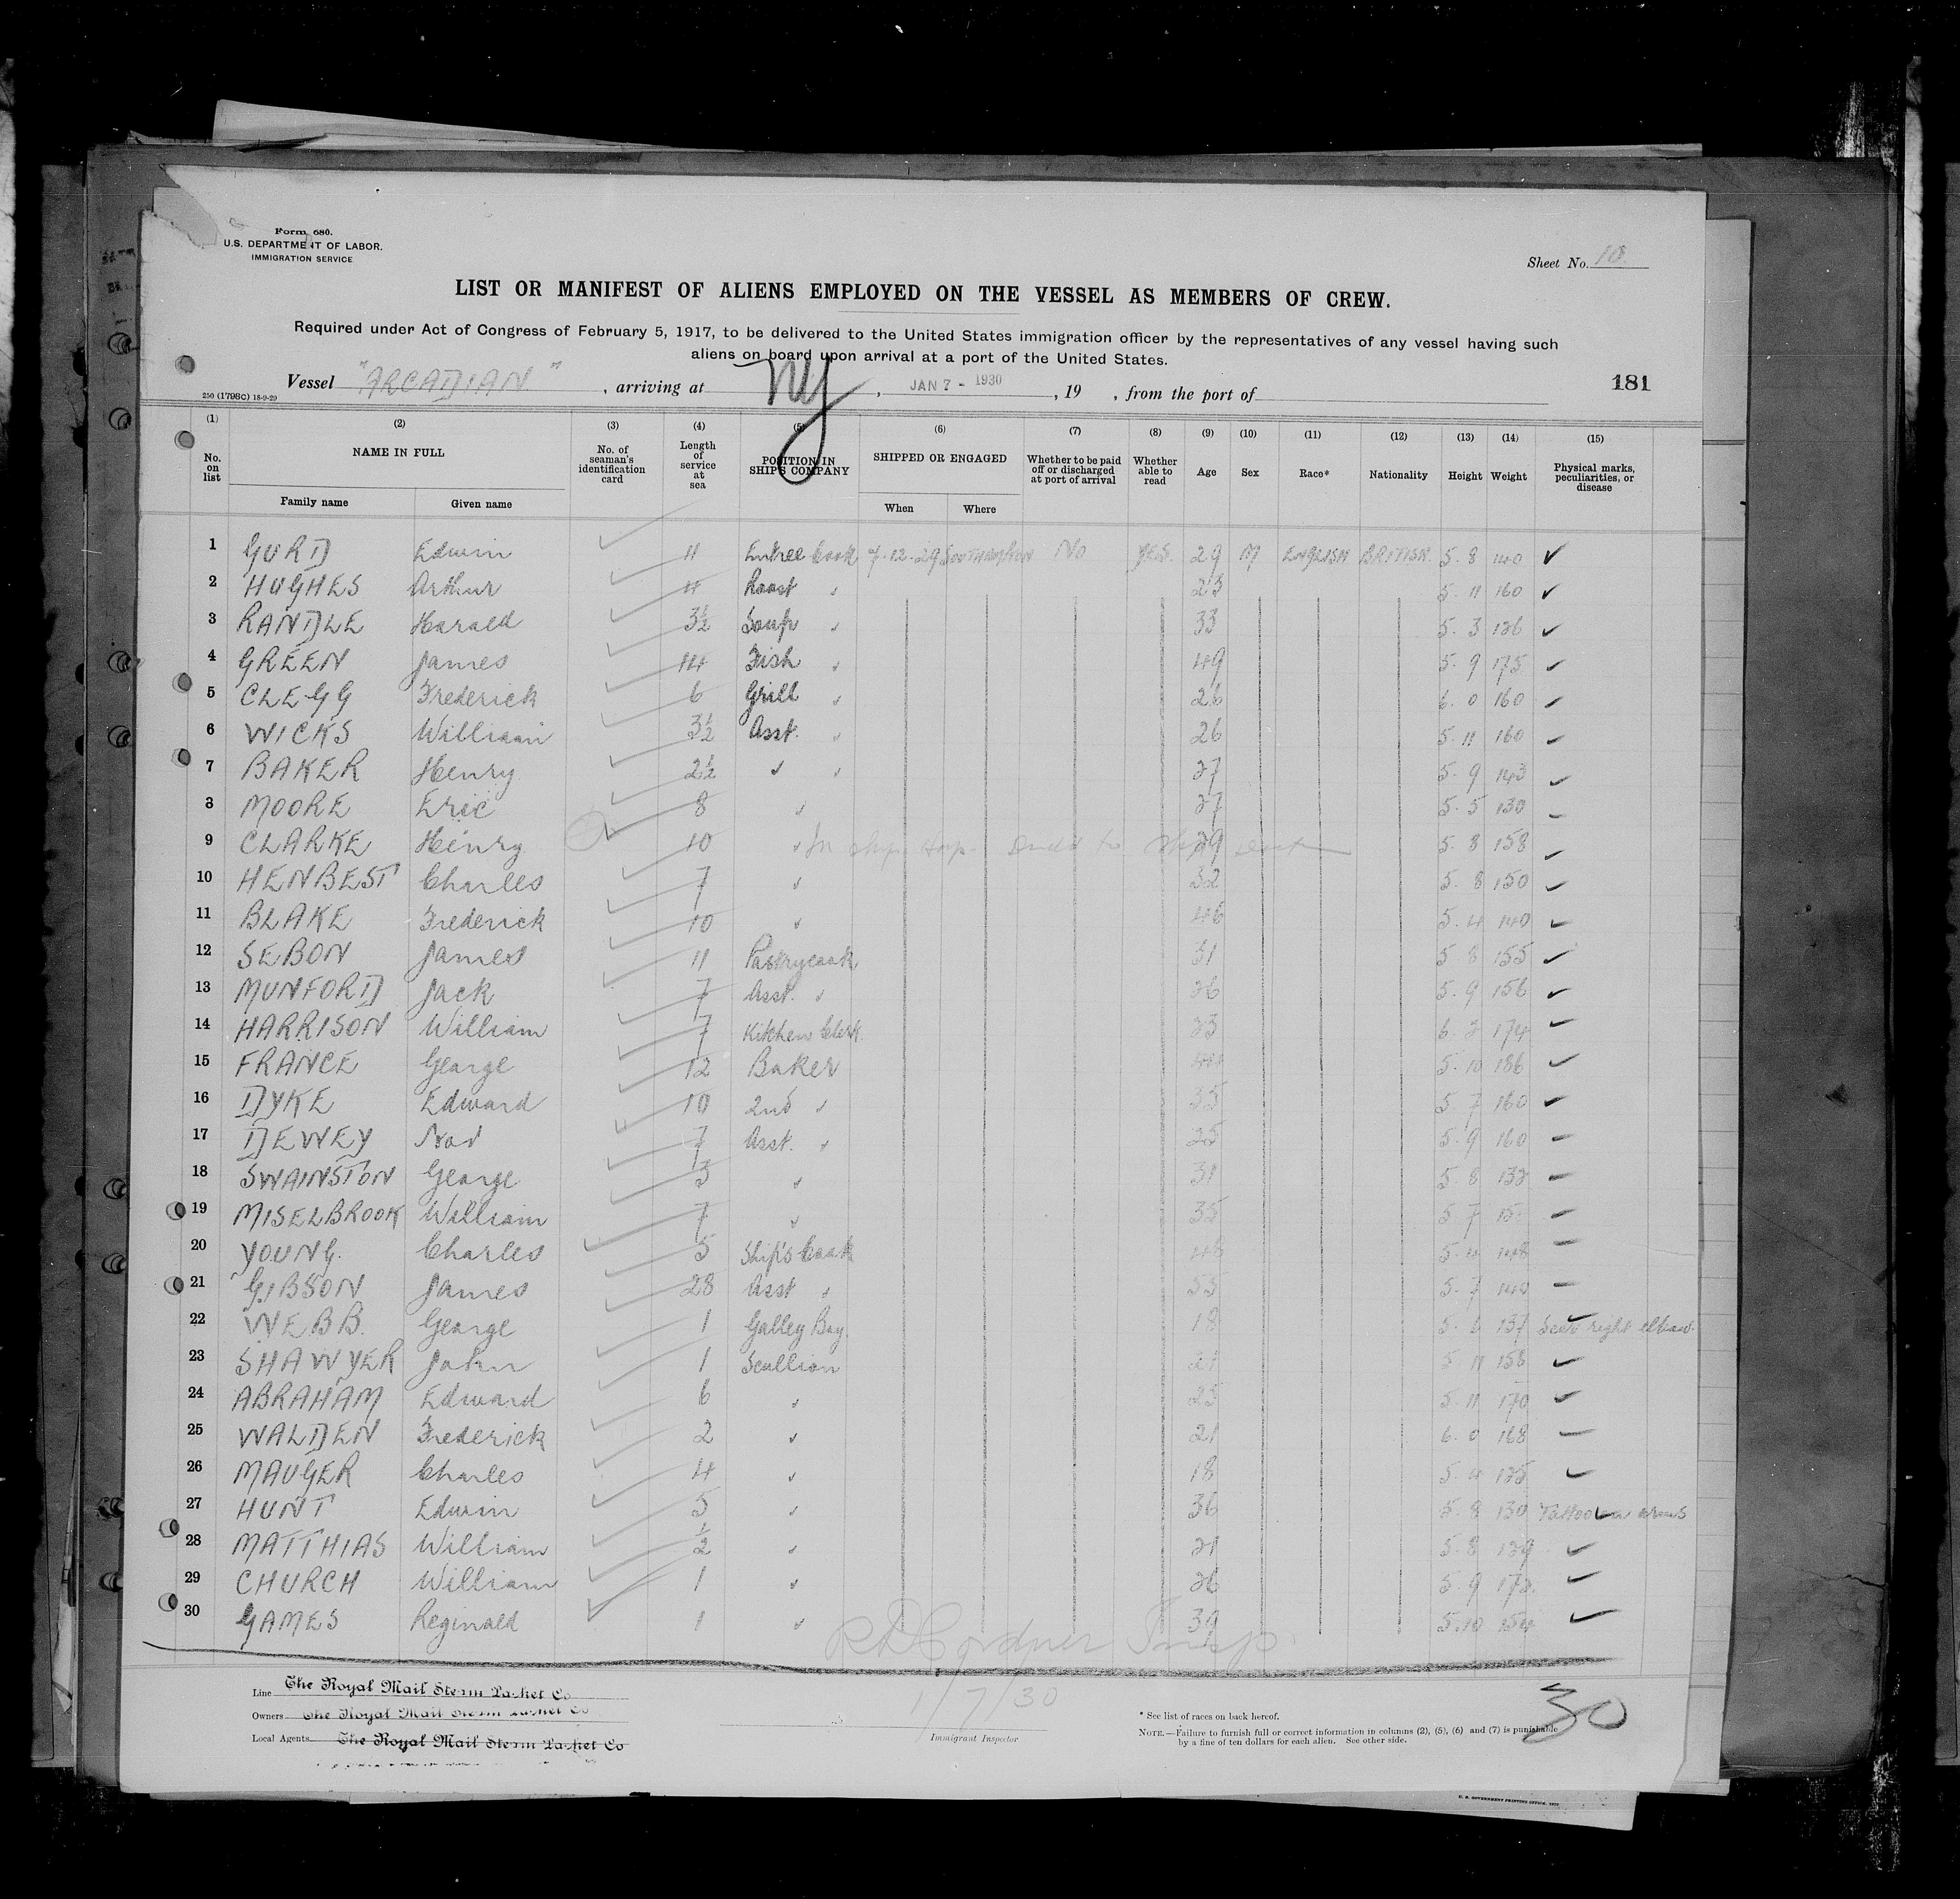 Form 680.
U.S. DEPARTMENT OF LABOR.
IMMIGRATION SERVICE
Sheet No. 10
LIST OR MANIFEST OF ALIENS EMPLOYED ON THE VESSEL AS MEMBERS OF CREW.
Required under Act of Congress of February 5, 1917, to be delivered to the United States immigration officer by the representatives of any vessel having such
aliens on board upon arrival at a port of the United States.
Vessel "ARCADIAN", arriving at NY, JAN 7 - 1930, 19 , from the port of
181
250 (1798C) 18-9-29
(1) (2) (3) (4) (5) (6) (7) (8) (9) (10) (11) (12) (13) (14) (15)
No. on list NAME IN FULL No. of seaman's identification card Length of service at sea POSITION IN SHIP'S COMPANY SHIPPED OR ENGAGED Whether to be paid off or discharged at port of arrival Whether able to read Age Sex Race* Nationality Height Weight Physical marks, peculiarities, or disease
Family name Given name When Where
1 GURD Edwin 11 Entree Cook 7-12-29 SOUTHAMPTON No YES. 29 M ENGLISH BRITISH 5. 8 140
2 HUGHES Arthur Roast " 23 5. 11 160
3 RANDLE Harald 3½ Soup " 33 5. 3 126
4 GREEN James 14 Fish " 49 5. 9 175
5 CLEGG Frederick 6 Grill " 26 6. 0 160
6 WICKS William 3½ Asst. " 26 5. 11 160
7 BAKER Henry 2½ " " 27 5. 9 143
8 MOORE Eric 8 " 27 5. 5 130
9 CLARKE Henry. 10 " 29 5. 8 158
10 HENBEST Charles 7 " 32 5. 8 150
11 BLAKE Frederick 10 " 46 5. 4 140
12 SEBON James 11 Pastrycook 31 5 8 155
13 MUNFORD Jack 7 Asst. " 26 5. 9 156
14 HARRISON William 7 Kitchen Clerk 23 6. 2 174
15 FRANCE George 12 Baker 5. 10 186
16 DYKE Edward 10 2nd " 35 5 7 160
17 DEWEY 7 Asst. " 25 5. 9 160
18 SWAINSTON George 5 " 31 5. 8 132
19 MISELBROOK William 7 " 35 5 7
20 YOUNG. Charles 5 Ship's Cook 5. 4 148
21 GIBSON James 28 Asst " 55 5. 7 140
22 WEBB. George 1 Galley Boy. 18 137 Scar right elbow.
23 SHAWYER John 1 Scullion 21 5 11 158
24 ABRAHAM Edward 6 " 25 5. 11 170
25 WALDEN Frederick 2 " 21 6. 0 168
26 MAUGER Charles 4 " 18 5. 4 125
27 HUNT Edwin 5 " 36 5. 8 130 Tattoo on arms
28 MATTHIAS William ½ " 21 5. 8 129
29 CHURCH William 1 " 26 5. 9 172
30 GAMES Reginald 1 " 39 5. 10 154
Insp.
1/7/30
30
Line The Royal Mail Steam Packet Co
Owners The Royal Mail Steam Packet Co
Local Agents The Royal Mail Steam Packet Co
Immigrant Inspector
* See list of races on back hereof.
NOTE.—Failure to furnish full or correct information in columns (2), (5), (6) and (7) is punishable
by a fine of ten dollars for each alien. See other side.
U. S. GOVERNMENT PRINTING OFFICE